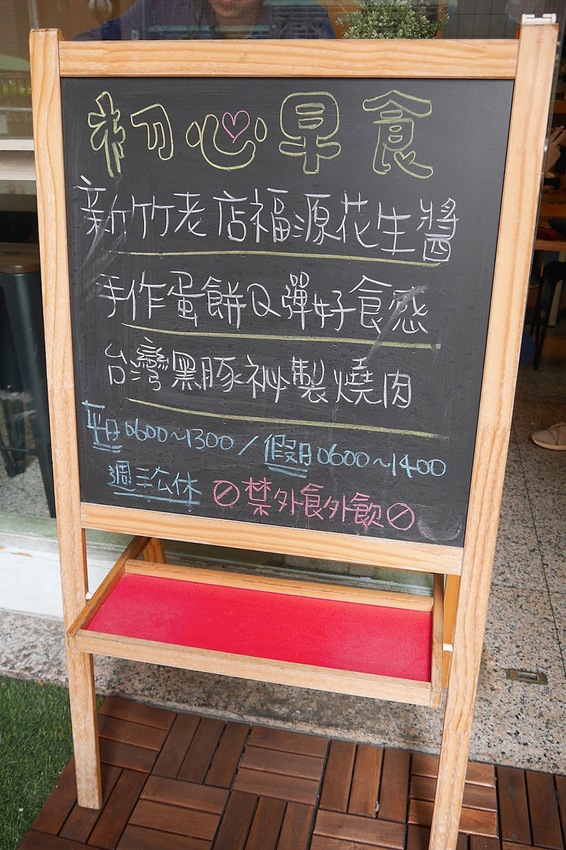 初心早食
新竹老店福源花生醬
手作蛋餅Q彈好食感
台灣黑豚祕製燒肉
平日0600~1300/假日0600~1400
週三公休 禁外食外飲